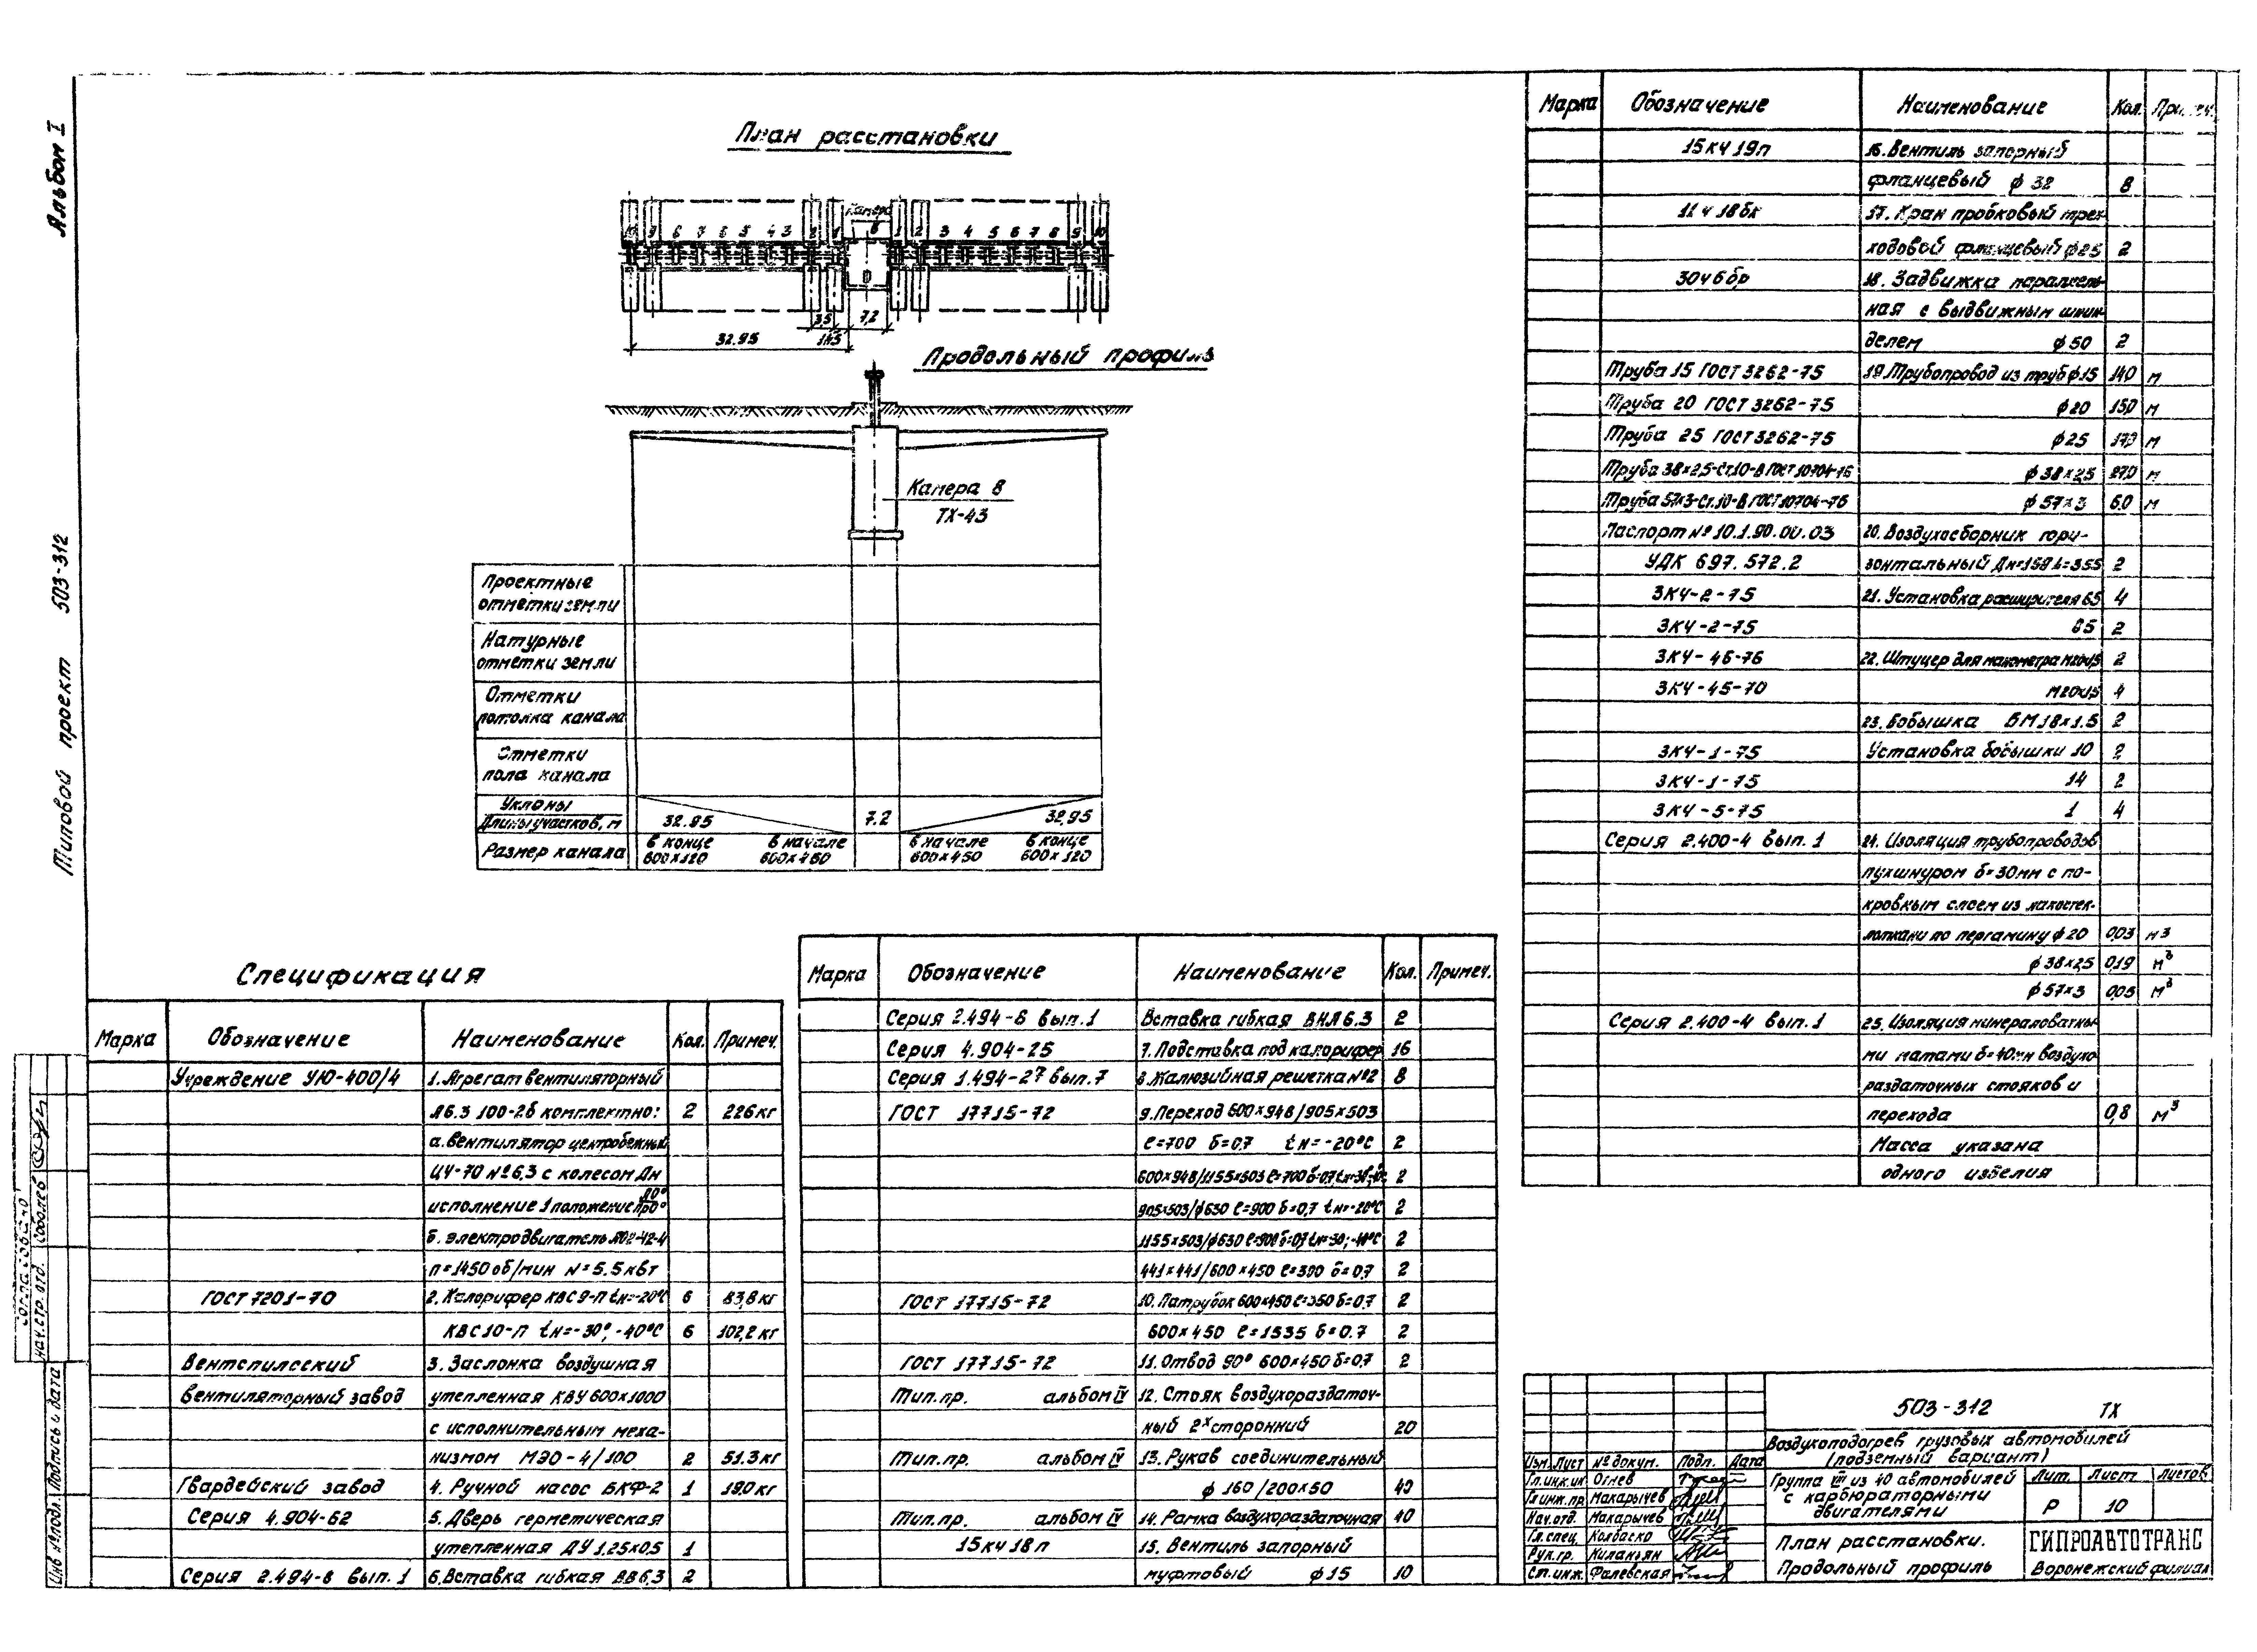 Альбом I
Типовой проект 503-312
План расстановки
Камера
10 9 8 7 6 5 4 3 2 1 8 1 2 3 4 5 6 7 8 9 10
3,5 7,2
32.95
Продольный профиль
Камера 8
ТХ-43
Проектные
отметки земли
Натурные
отметки земли
Отметки
потолка канала
Отметки
пола канала
Уклоны
Длины участков, м 32.95 7.2 32,95
Размер канала
в конце
600×120
в начале
600×450
в начале
600×450
в конце
600×120
Спецификация
Марка Обозначение Наименование Кол. Примеч.
Учреждение УЮ-400/4 1. Агрегат вентиляторный
А6.3 100-2б комплектно: 2 226кг
а. вентилятор центробежный
Ц4-70 №6,3 с колесом Дн
исполнение 1 положение
б. электродвигатель АО2-42-4
n=1450 об/мин N=5.5 кВт
ГОСТ 7201-70 2. Калорифер КВС 9-П tн=-20°С 6 83,8 кг
КВС 10-П tн=-30°,-40°С 6 102,2 кг
Вентспилсский 3. Заслонка воздушная
вентиляторный завод утепленная КВУ 600×1000
с исполнительным меха-
низмом МЭО-4/100 2 51.3 кг
Гвардейский завод 4. Ручной насос БКФ-2 1 19.0 кг
Серия 4.904-62 5. Дверь герметическая
утепленная ДУ 1.25×0,5 1
Серия 2.494-8 вып. 1 6. Вставка гибкая ВВ 6,3 2
Марка Обозначение Наименование Кол. Примеч.
Серия 2.494-8 вып. 1 Вставка гибкая ВНА 6.3 2
Серия 4.904-25 7. Подставка под калорифер 16
Серия 1.494-27 вып. 7 8. Жалюзийная решетка №2 8
ГОСТ 17715-72 9. Переход 600×948/905×503
ℓ=700 δ=0.7 tн=-20°С 2
600×948/1155×503 ℓ=700 δ=0.7 2
905×503/ф630 ℓ=900 δ=0,7 tн=-20°С 2
1155×503/ф630 ℓ=900 δ=0.7 tн=-30;-40°С 2
441×441/600×450 ℓ=300 δ=0.7 2
ГОСТ 17715-72 10. Патрубок 600×450 ℓ=350 δ=0.7 2
600×450 ℓ=1335 δ=0.7 2
ГОСТ 17715-72 11. Отвод 90° 600×450 δ=0,7 2
Тип. пр. альбом IV 12. Стояк воздухораздаточ-
ный 2х сторонний 20
Тип. пр. альбом IV 13. Рукав соединительный
ф 160/200×50 40
Тип. пр. альбом IV 14. Рамка воздухораздаточная 40
15 кч 18 п 15. Вентиль запорный
муфтовый ф 15 10
Марка Обозначение Наименование Кол. Примеч.
15 кч 19п 16. Вентиль запорный
фланцевый ф 32 8
11 ч 18 бк 17. Кран пробковый трех-
ходовой фланцевый ф 25 2
30ч 6 бр 18. Задвижка параллель-
ная с выдвижным шпин-
делем ф 50 2
Труба 15 ГОСТ 3262-75 19. Трубопровод из труб ф 15 140 м
Труба 20 ГОСТ 3262-75 ф20 150 м
Труба 25 ГОСТ 3262-75 ф25 170 м
Труба 38×2,5-Ст.10-В ГОСТ 10704-76 ф 38×2,5 270 м
Труба 57×3-Ст.10-В ГОСТ 10704-76 ф 57×3 60 м
Паспорт № 10.1.90.00.03 20. Воздухосборник гори-
УДК 697.572.2 зонтальный Дн=159 L=355 2
ЗКЧ-2-75 21. Установка расширителя 65 4
ЗКЧ-2-75 85 2
ЗКЧ-46-76 22. Штуцер для манометра М20×1,5 2
ЗКЧ-45-70 М20×1,5 4
23. Бобышка БМ 18×1.5 2
ЗКЧ-1-75 Установка бобышки 10 2
ЗКЧ-1-75 14 2
ЗКЧ-5-75 1 4
Серия 2.400-4 вып. 1 24. Изоляция трубопроводов
пухшнуром δ=30мм с по-
кровным слоем из лакостек-
лоткани по пергамину ф 20 0,03 м3
ф 38×2,5 0,19 м³
ф 57×3 0,05 м³
Серия 2.400-4 вып. 1 25. Изоляция минераловатны-
ми матами δ=40мм воздухо
раздаточных стояков и
перехода 0,8 м³
Масса указана
одного изделия
503-312 ТХ
Воздухоподогрев грузовых автомобилей
(подземный вариант)
Изм. Лист № докум. Подп. Дата
Гл. инж. ин Огнев
Гл. инж. пр Макарычев
Нач. отд. Макарычев
Гл. спец. Колбаско
Рук. гр. Киланьян
Ст. инж. Фалевская
Группа VIII из 40 автомобилей
с карбюраторными
двигателями
Лит. Лист Листов
Р 10
План расстановки.
Продольный профиль
ГИПРОАВТОТРАНС
Воронежский филиал
Согласовано
Нач. ср. отд. Соболев
Инв. № подл. Подпись и дата